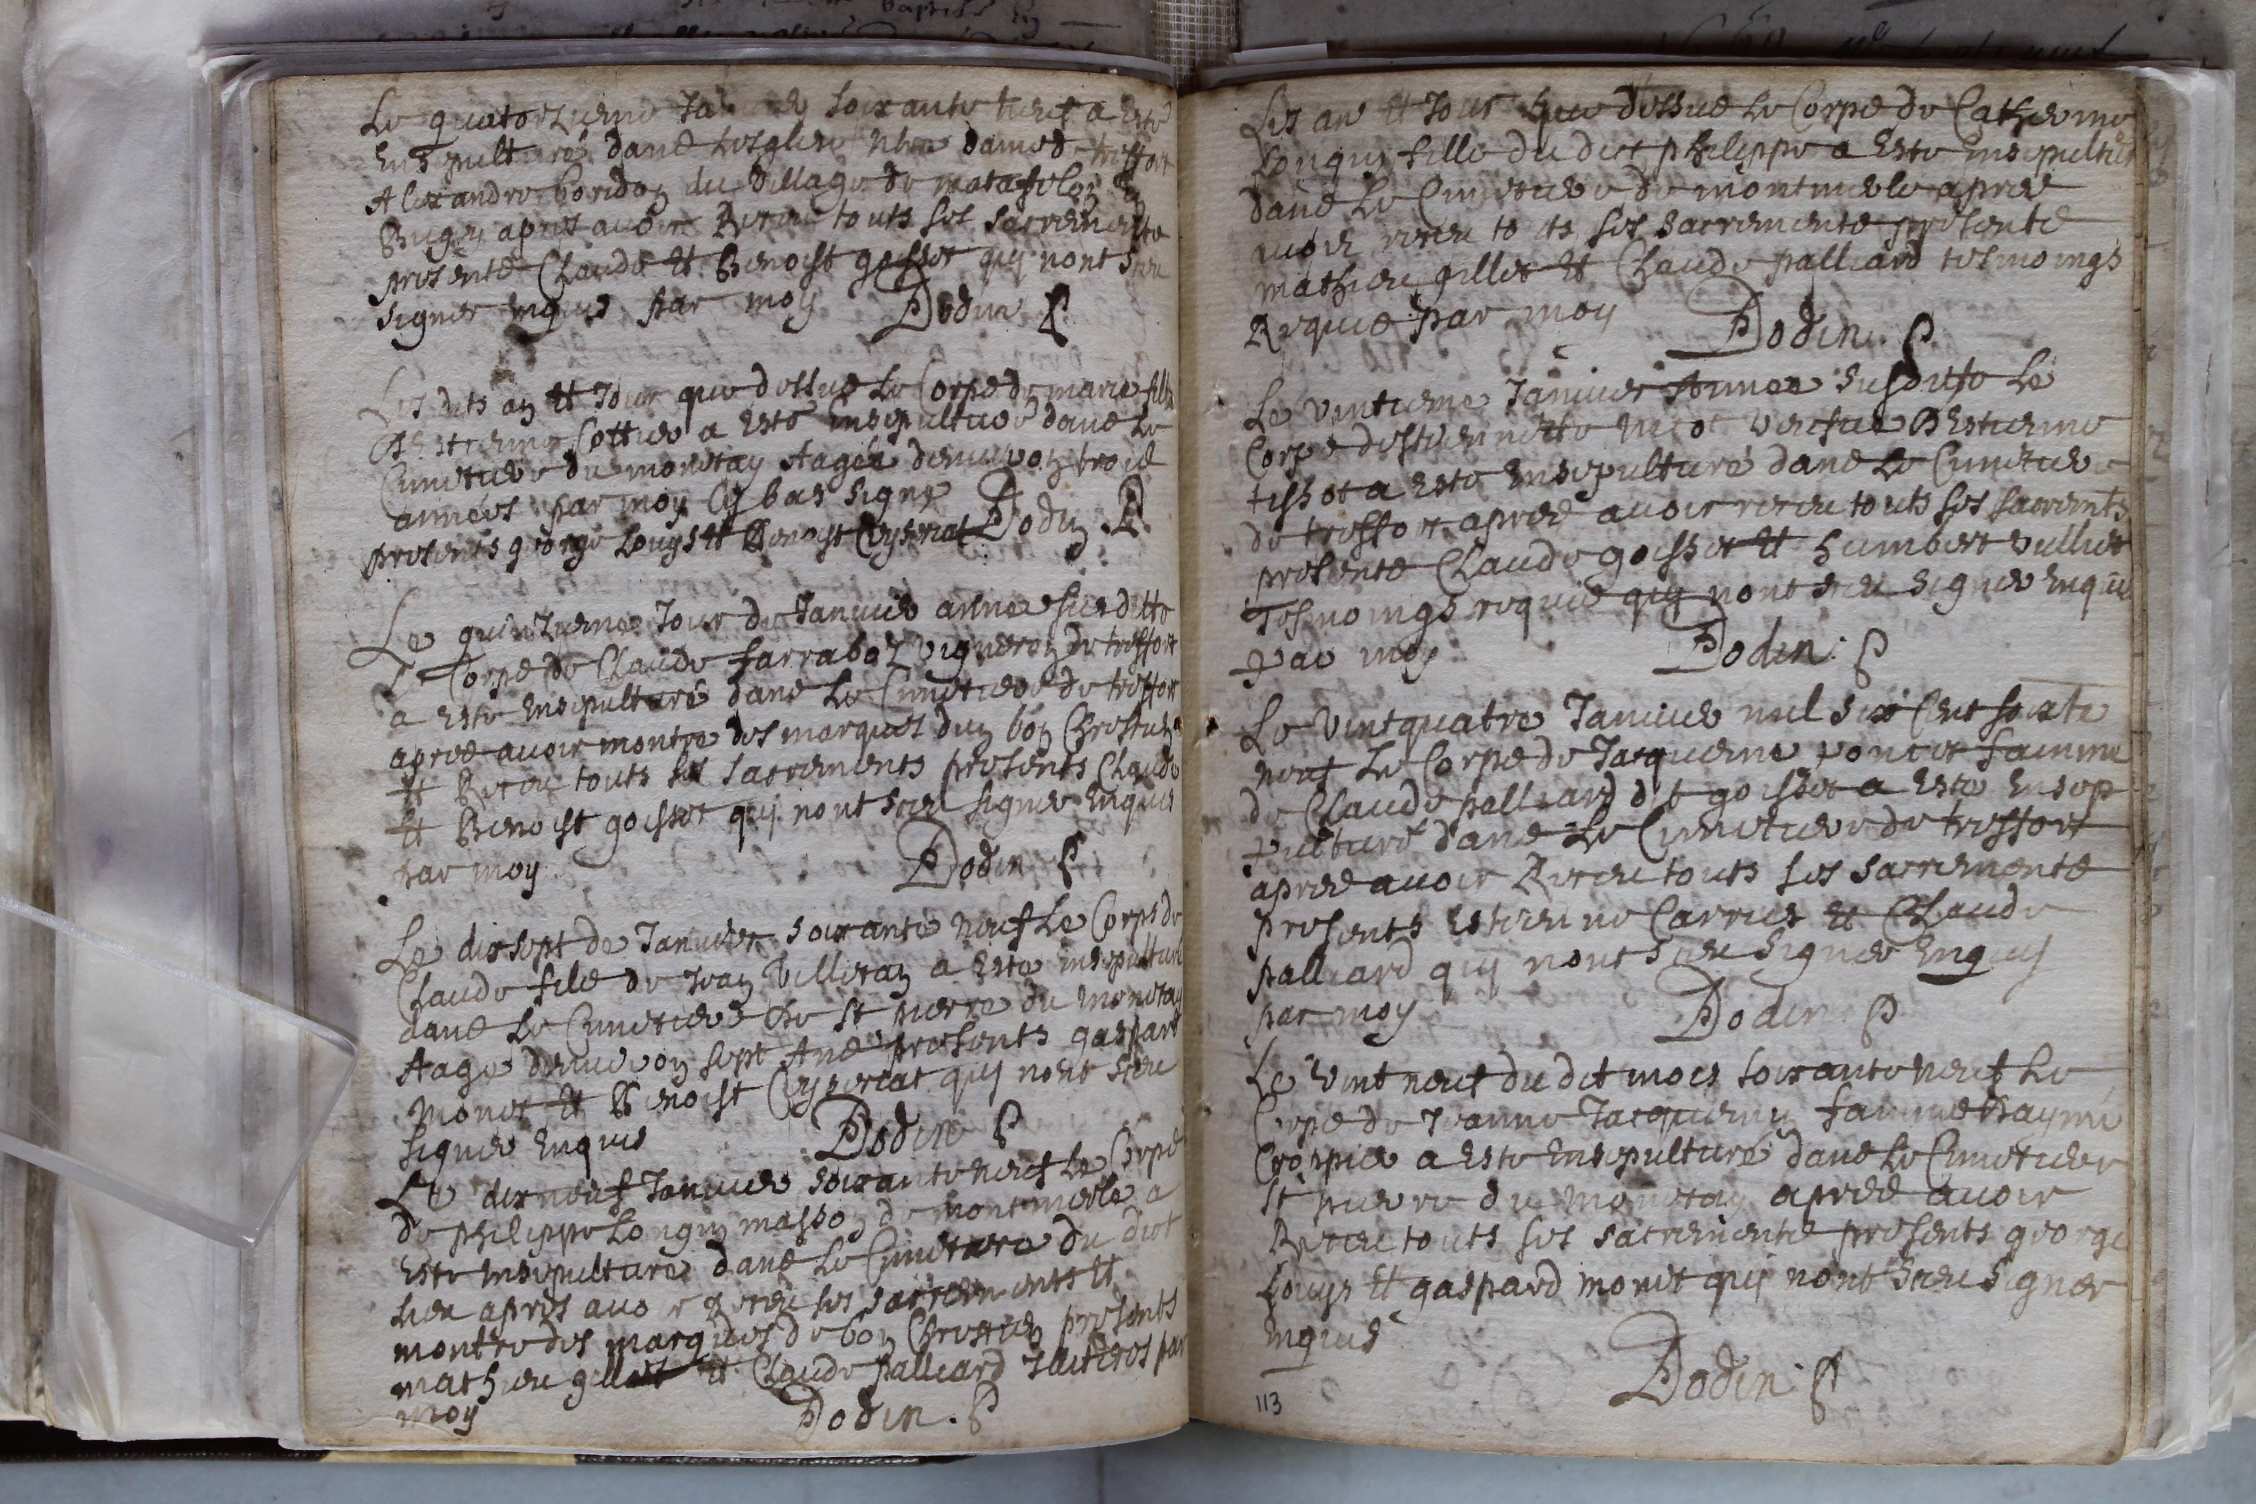 Le quatorzieme Januier soixante neuf a esté
Ensepulturé dans Lesglise nre dame de treffort
Alexandre boridon du Village de matafelon En
Bugey apres auoir Receu touts ses sacrements
presents Claude Et Benoist goisset quy nont sceu
signer enquis par moy Dodin P
Les dits an Et Jour que dessus Le Corps de marie fille
D'Estienne Cottier a Esté ensepulturé dans Le
Cimetiere du monetay Aagée denuiron trois
années par moy Cy bas signé
presents george Louys Et Benoist Cyseriat Dodin P
Le quinzieme Jour de Januier annee susditte
Le Corps de Claude farraboz vigneron de treffort
a Esté ensepulturé dans Le Cimetiere de treffort
apres auoir montre des marques dun bon Chrestien
Et Receu touts ses sacrements presents Claude
Et Benoist goisset quy nont sceu signer Enquis
par moy Dodin P
Le dixsept de Januier soixante neuf Le Corps de
Claude fils de Jean Villeran a Esté ensepulturé
dans Le Cimetiere De St pierre du Monetay
Aagé denuiron sept Ans presents gaspard
monet Et Benoist Cyseriat quy nont sceu
signer Enquis Dodin P
Le dixneuf Januier soixante neuf Le Corps
de philippe Longin masson de montmerle a
Esté ensepulturé dans Le Cimetiere du dict
lieu apres auoir Receu ses sacrements Et
montre des marques de bon Chrestien presents
mathieu gillet Et Claude palliard Illiteres par
moy Dodin. P
Les an Et Jour que dessus Le Corps de Catherine
Longin fille du dict philippe a Esté Ensepulturé
dans Le Cimetiere de montmerle apres
auoir receu touts ses sacrements presents
mathieu gillet Et Claude palliard tesmoings
Requis par moy Dodin. P
Le vintieme Januier Annee susditte Le
Corps destiennette nicot vefue D'Estienne
tissot a Esté Ensepulturé dans Le Cimetiere
de treffort apres auoir receu touts ses sacremts
presents Claude goisset Et humbert vulliet
Tesmoings requis quy nont sceu signer Enquis
par moy Dodin: P
Le Vintquatre Januier mil six Cent soixte
neuf Le Corps de Jacqueme poncet famme
de Claude palliard dit goisset a Esté Ensep
pulturé dans Le Cimetiere de treffort
apres auoir Receu touts ses sacrements
presents Estienne Carrier Et Claude
palliard quy nont sceu signer Enquis
par moy Dodin P
Le Vint neuf du dit mois soixante neuf Le
Corps de Jeanne Jacquemin famme D'aymé
Croppier a Esté Ensepulturé dans Le Cimetiere
St pierre du Monetay apres auoir
Receu touts ses sacrements presents george
Louys Et gaspard monet quy nont sceu signer
Enquis
Dodin P
113